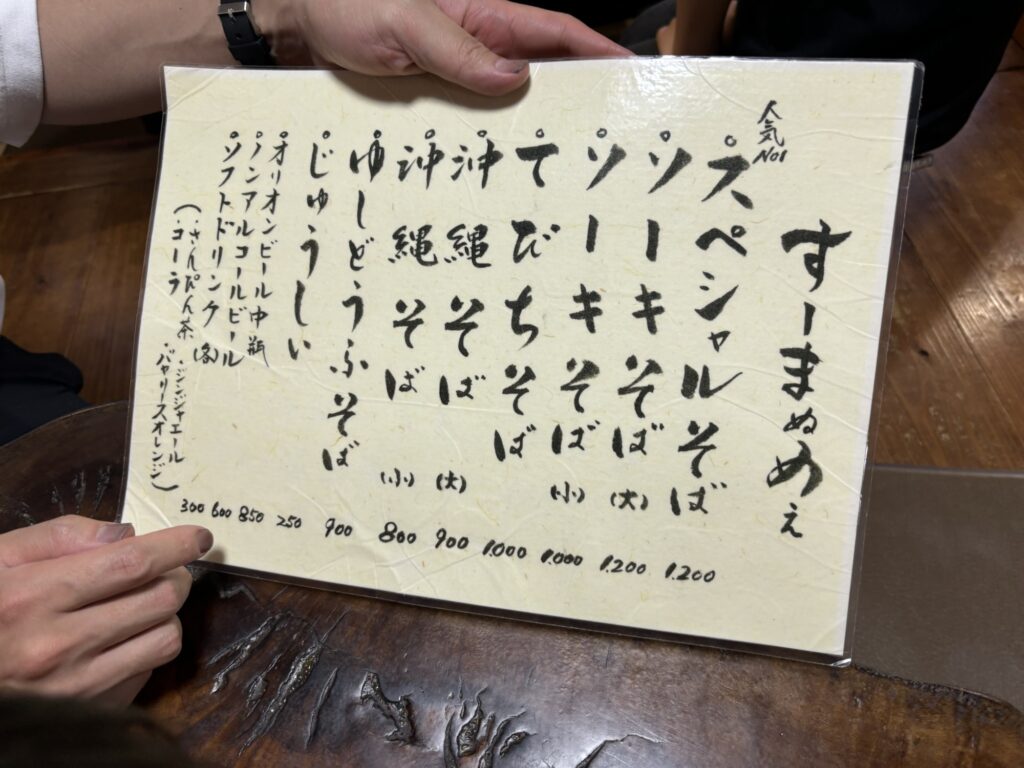 すーまぬめぇ
人気No1
スペシャルそば 1.200
ソーキそば (大) 1.200
ソーキそば (小) 1.000
てびちそば 1.000
沖縄そば (大) 900
沖縄そば (小) 800
ゆしどうふそば 900
じゅうしい 250
オリオンビール中瓶 850
ノンアルコールビール 600
ソフトドリンク(各) 300
(・さんぴん茶 ・ジンジャエール
・コーラ ・バヤリースオレンジ)